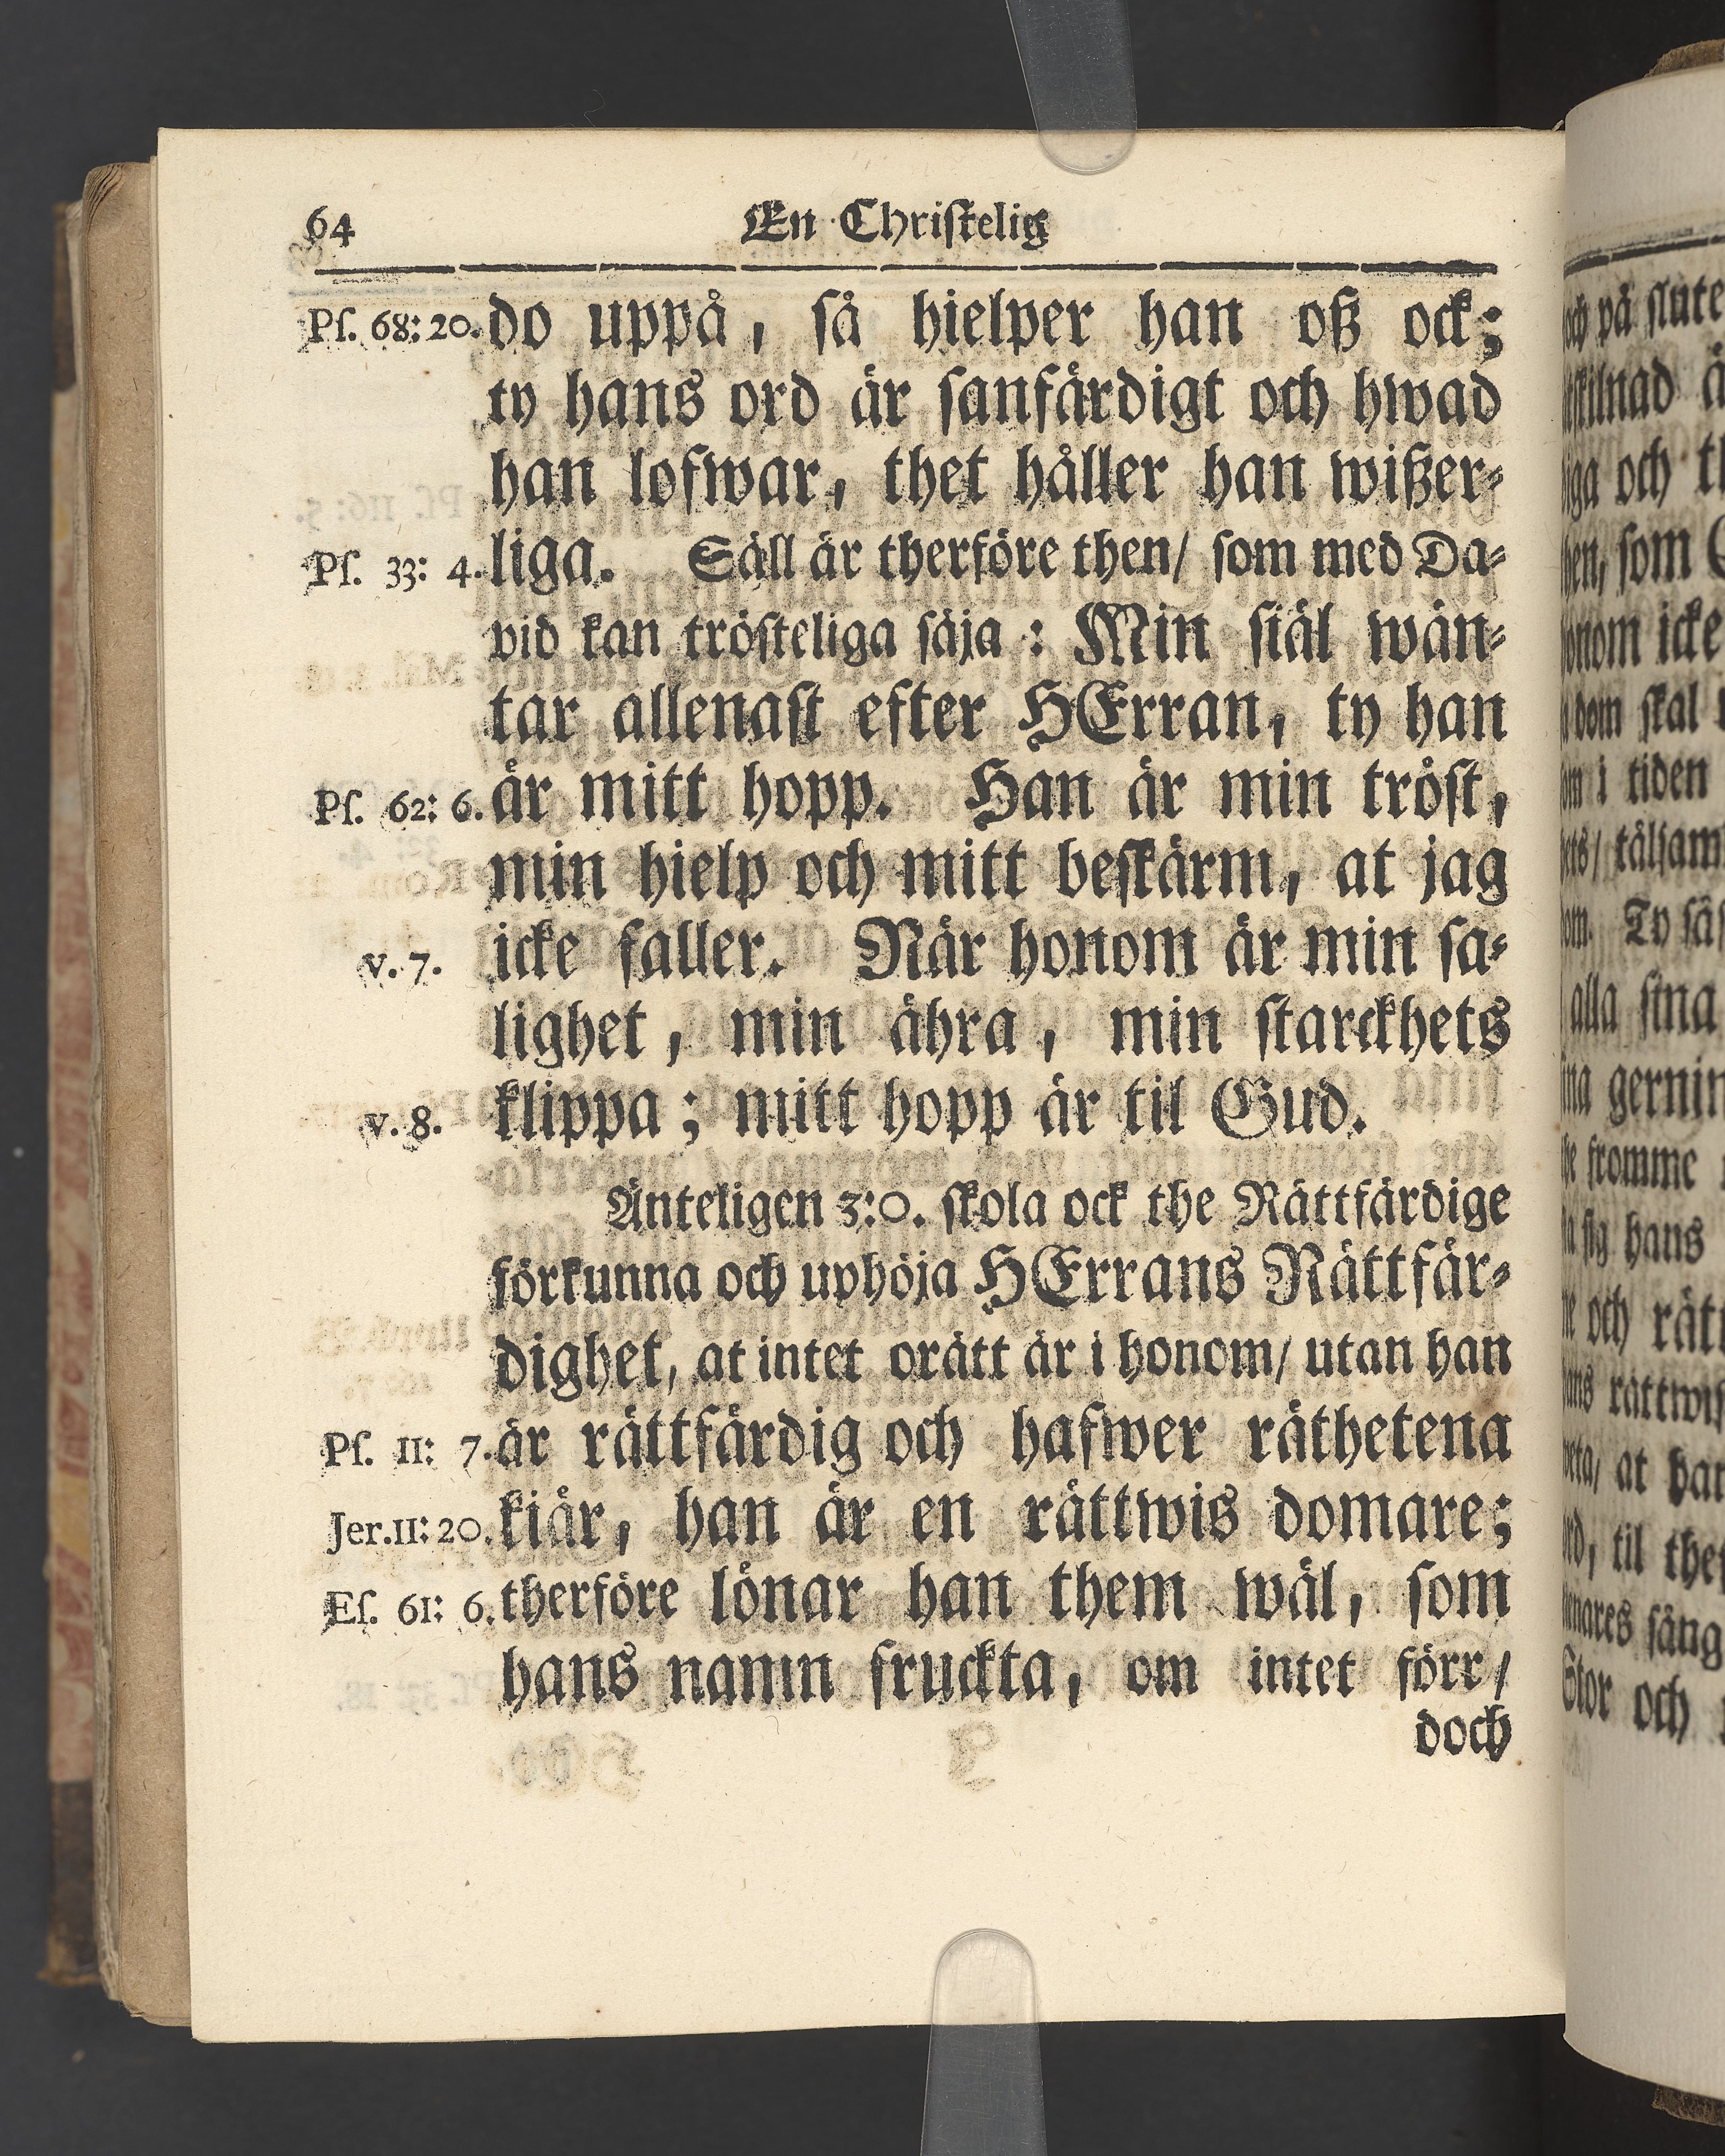 64 En Christelig
Ps. 68: 20. do uppå, så hielper han oß ock;
ty hans ord är sanfärdigt och hwad
han lofwar, thet håller han wißer-
Ps. 33: 4. liga. Säll är therföre then/ som med Da-
vid kan trösteliga säja: Min siäl wän-
tar allenast efter HErran, ty han
Ps. 62: 6. är mitt hopp. Han är min tröst,
min hielp och mitt beskärm, at jag
v. 7. icke faller. När honom är min sa-
lighet, min ähra, min starckhets
v. 8. klippa; mitt hopp är til Gud.
Änteligen 3:0. skola ock the Rättfärdige
förkunna och uphöja HErrans Rättfär-
dighet, at intet orätt är i honom/ utan han
Ps. 11: 7. är rättfärdig och hafwer räthetena
Jer. 11: 20. kiär, han är en rättwis domare;
Es. 61: 6. therföre lönar han them wäl, som
hans namn fruckta, om intet förr/
doch